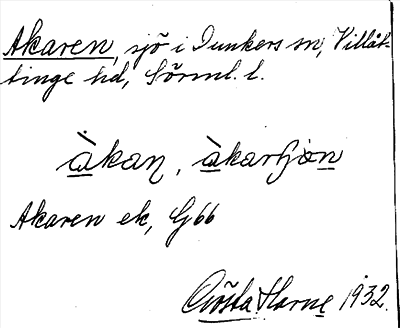 Akaren, sjö i Dunkers sn, Villåt-
tinge hd, Sörml. l.
àkaη, àkarʃöη
Akaren ek, G66
Gösta Harne 1932.